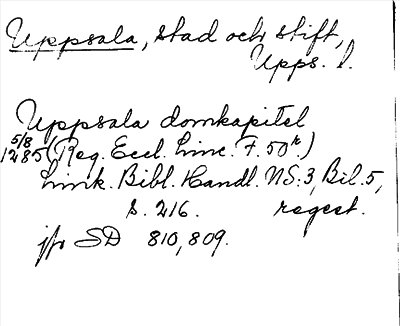 Uppsala, stad och stift,
Upps. l.
Uppsala domkapitel
5/8
1285 (Reg. Eccl. Linc. F. 50r.)
Link. Bibl. Handl. N.S. 3, Bil. 5,
s. 216. regest.
jfr SD 810, 809.